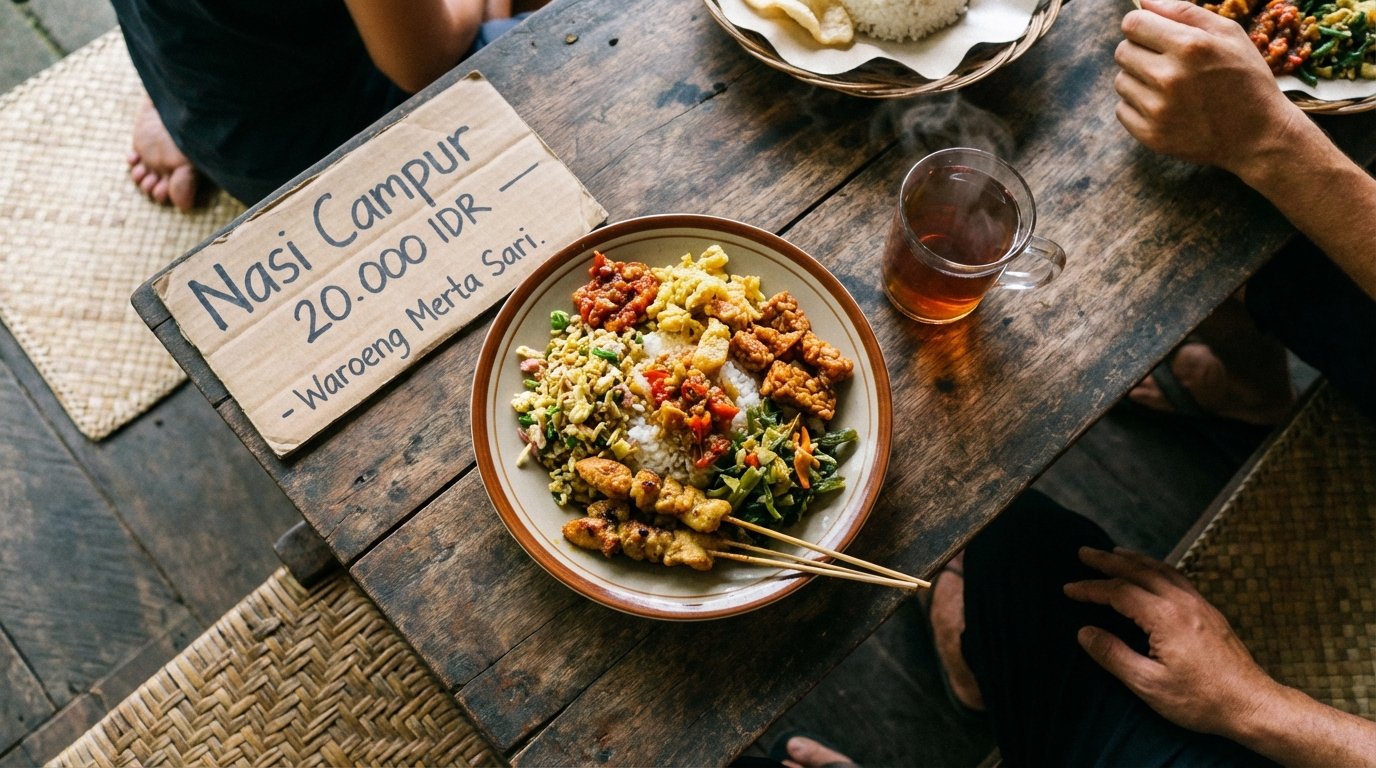 Nasi Campur
20.000 IDR –
- Waroeng Merta Sari.